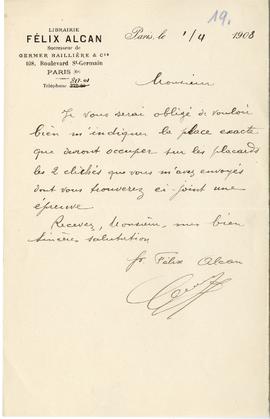 19.
LIBRAIRIE
FÉLIX ALCAN
Successeur de
GERMER BAILLIÈRE & Cie
108, Boulevard St-Germain
PARIS
Téléphone
Paris, le 1/4 1908
Monsieur
Je vous serai obligé de vouloir
bien m'indiquer la place exacte
que devront occuper sur les placards
les 2 clichés que vous m'avez envoyés
dont vous trouverez ci-joint une
épreuve
Recevez, Monsieur, mes bien
sincères salutation
pr Félix Alcan